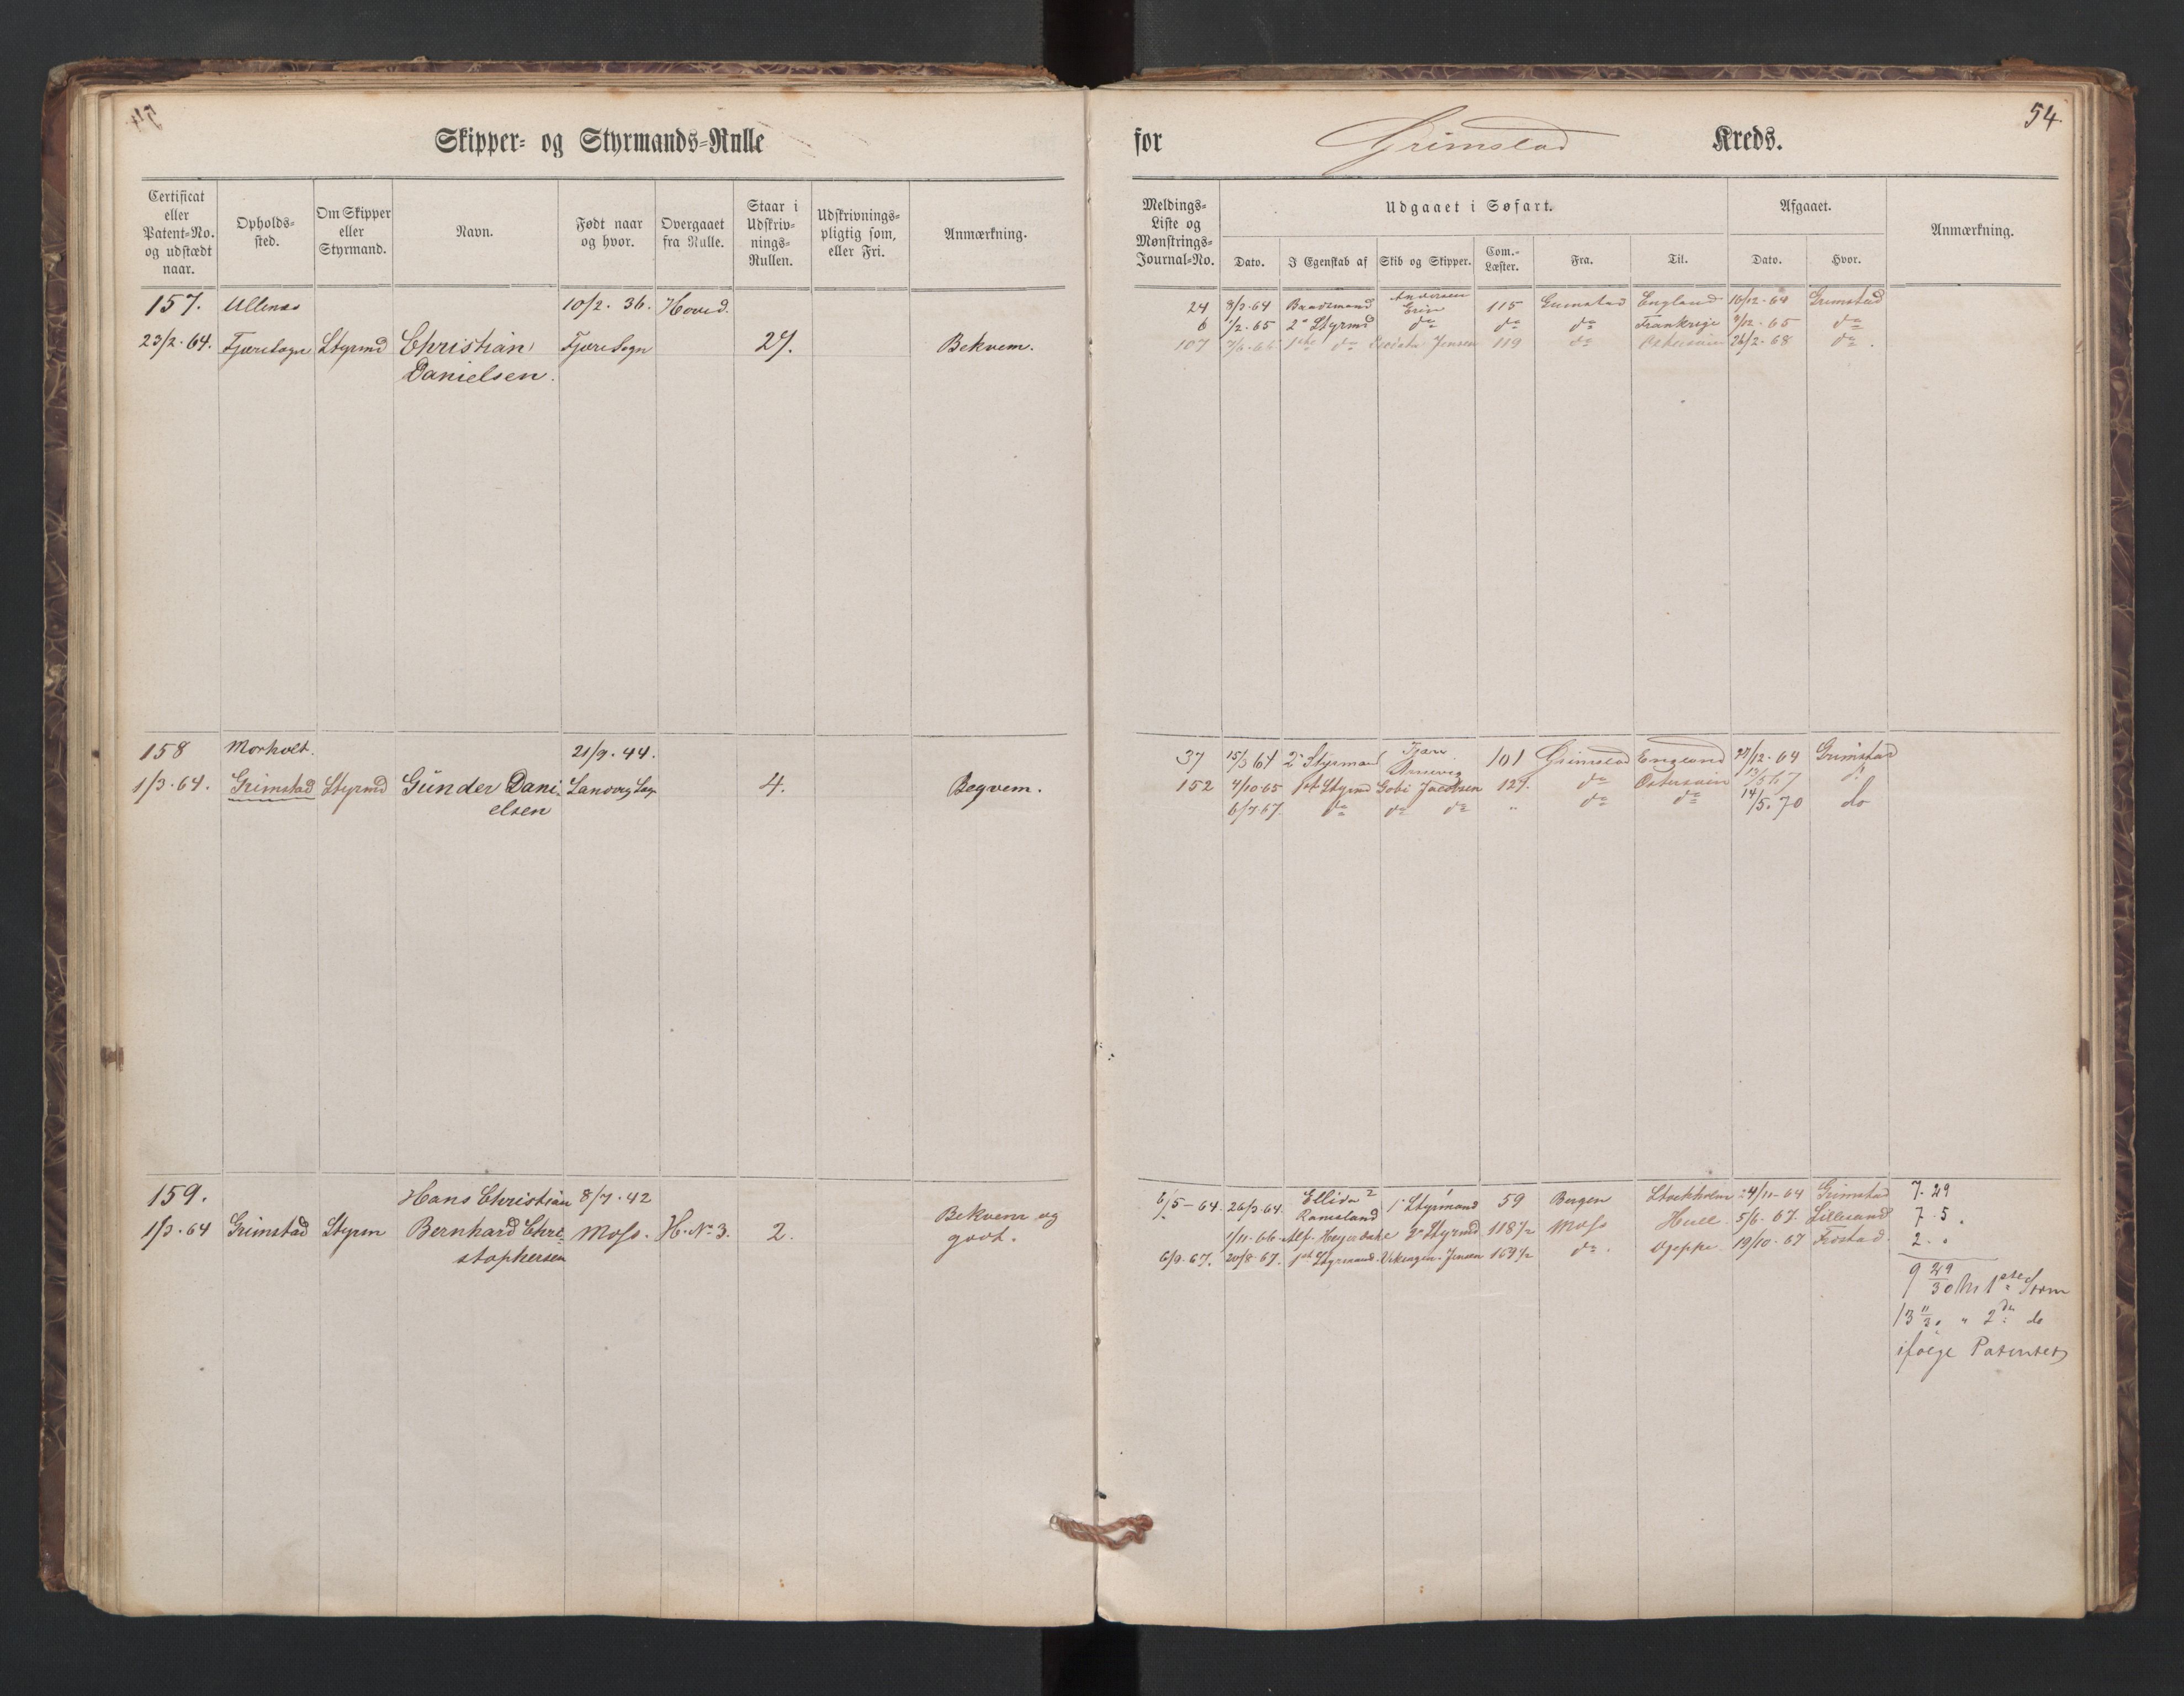 Skipper- og Styrmands-Rulle
for Grimstad Kreds.
54
Certificat eller Patent-No. og udstædt naar.
Opholds-sted.
Om Skipper eller Styrmand.
Navn.
Født naar og hvor.
Overgaaet fra Rulle.
Staar i Udskriv-nings-Rullen.
Udskrivnings-pligtig som, eller Fri.
Anmærkning.
Meldings-Liste og Mønstrings-Journal-No.
Udgaaet i Søfart.
Dato.
I Egenskab af
Skib og Skipper.
Com.-Læster.
Fra.
Til.
Afgaaet.
Dato.
Hvor.
Anmærkning.
157. Ullenes 10/2. 36. Hoved.
23/2. 64. Fjæresogn Styrmd Christian Fjæresogn 27. Bekvem.
Danielsen.
24 8/3 64 Baadsmand Andersen Erin 115 Grimstad England 16/12. 64 Grimstad
6 1/2. 65 2n Styrmd do do do Frankrige 9/12. 65 do
107 7/6. 66 1ste do Jensen 119 do Østersøin 26/2. 68 do.
158 Morholt. 21/9. 44.
1/3. 64. Grimstad Styrmd Günder Dani- Landvig Sogn 4. Beqvem.
elsen
37 15/3 64 2n Styrmand 101 Grimstad England 27/12. 64 Grimstad
152 4/10. 65 1ste Styrmd Gobi Jacobsen 127. do Østersøin 13/5 67 do
6/7 67. do do do " do do 14/5. 70 do
159. Hans Christian 8/7. 42
1/3. 64 Grimstad Styrm Bernhard Chri- Moss. H. No 3. 2. Bekvem og
stophersen godt.
6/5 - 64. 26/3. 64. Ellida Ramsland 1n Styrmand 59 Bergen Stockholm 24/11 - 64 Grimstad 7. 29
1/11. 66 Alf. Heyerdahl 2n Styrmd 118 1/2 Moss Hull. 5/6. 67. Lillesand 7. 5.
6/9. 67. 20/8. 67. 1ste Styrmand. Vikingen. Jensen 169 1/2 do. Dieppe 19/10. 67 2. "
9 29/30 M 1ste Strm
13 11/30 " 2den do
ifølge Patentet